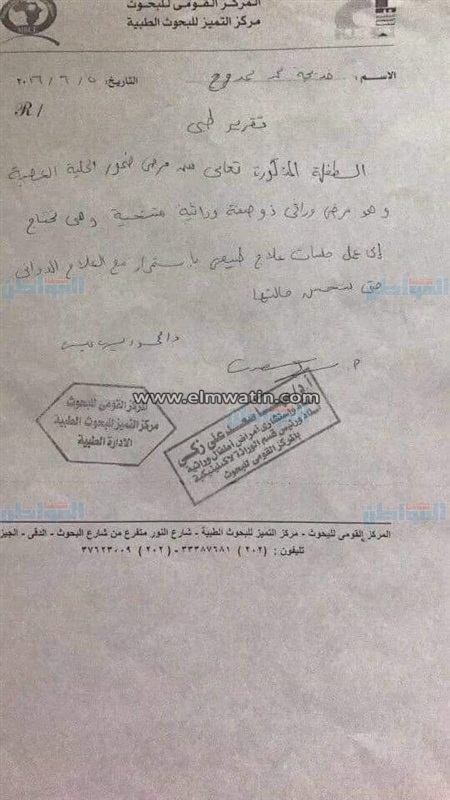 المركز القومى للبحوث
مركز التميز للبحوث الطبية
الاسم: خديجة محمد محمد فرج التاريخ: ٥ / ٦ / ٢٠١٦
R/
تقرير طبى
الطفلة المذكورة تعانى من مرض ضمور الخلية العصبية
وهو مرض وراثى ذو صفة وراثية متنحية وهى تحتاج
إلى عمل جلسات علاج طبيعى باستمرار مع العلاج الدوائى
حتى تتحسن حالتها
المواطن
المواطن
www.elmwatin.com
المركز القومى للبحوث
مركز التميز للبحوث الطبية
الادارة الطبية
سعد على زكي
واستشارى امراض اطفال وراثية
استاذ ورئيس قسم الوراثة الاكلينيكية
بالمركز القومى للبحوث
المواطن
المواطن
المركز القومى للبحوث - مركز التميز للبحوث الطبية - شارع النور متفرع من شارع البحوث - الدقى - الجيز
تليفون : (٢٠٢) ٣٣٣٨٧٦٨١ - (٢٠٢) ٣٧٦٢٣٠٠٩